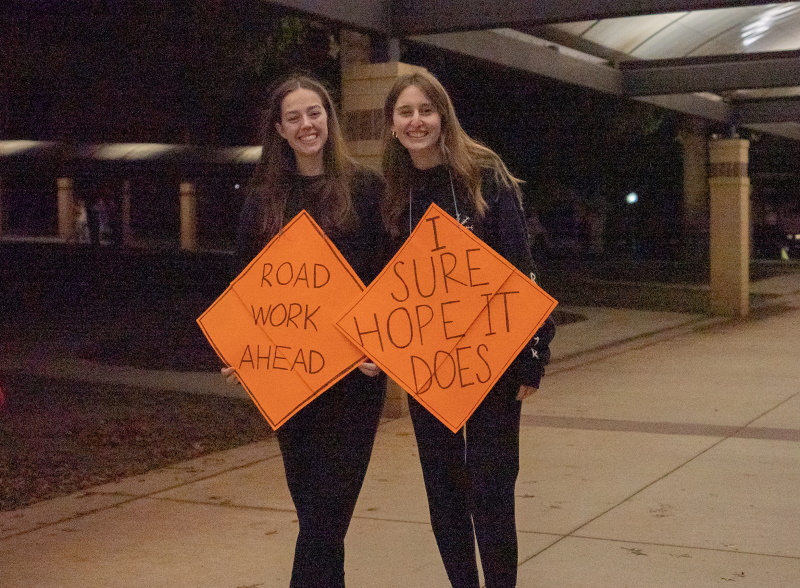 ROAD
WORK
AHEAD
I
SURE
HOPE IT
DOES